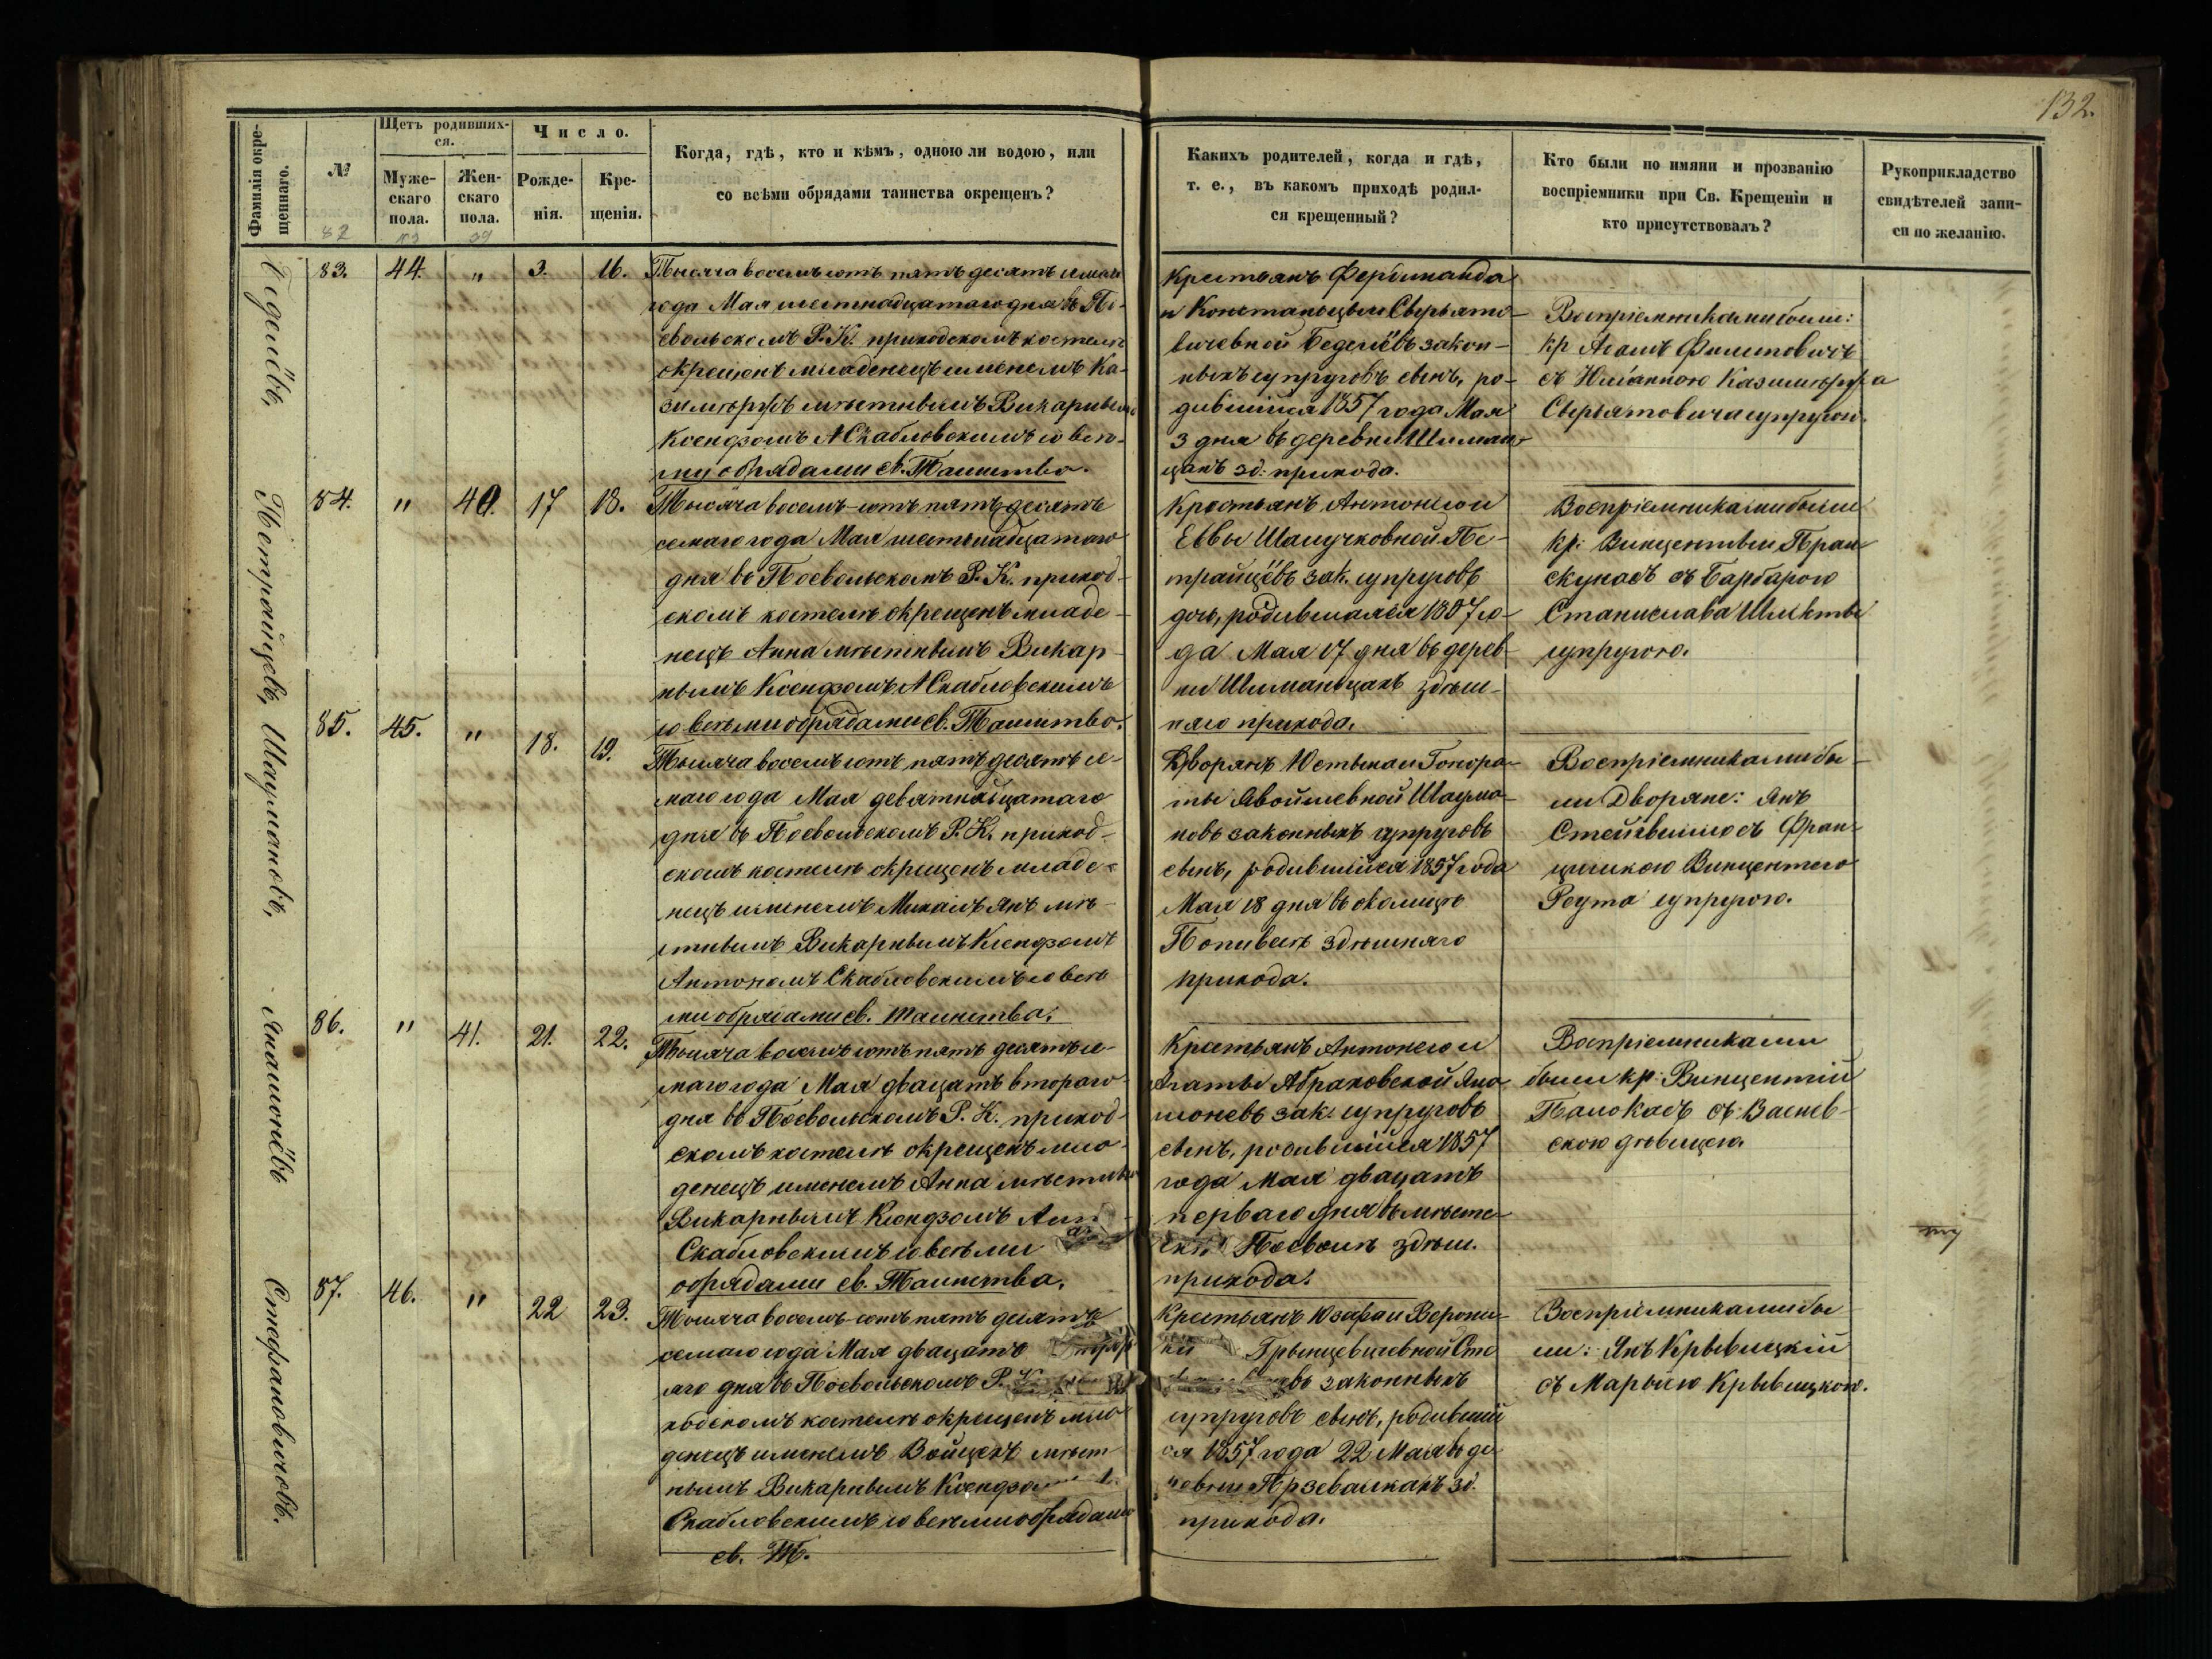 132.
Фамилія окрещеннаго.
№
Щетъ родившихся.
Мужескаго пола.
Женскаго пола.
Число.
Рожденія.
Крещенія.
Когда, гдѣ, кто и кѣмъ, одною ли водою, или
со всѣми обрядами таинства окрещенъ?
Какихъ родителей, когда и гдѣ,
т. е., въ какомъ приходѣ родил-
ся крещенный?
Кто были по имяни и прозванію
воспріемники при Св. Крещеніи и
кто присутствовалъ?
Рукоприкладство
свидѣтелей запи-
си по желанію.
82 39
83. 44. " 3. 16.
Тысяча восемъ сотъ пятъдесятъ семаго
года Мая шестнадцатаго дня въ По-
евольскомъ Р. К. приходскомъ костелѣ
окрещенъ младенецъ именемъ Ка-
зимѣръ мѣстнымъ Викарнымъ
Ксендзомъ А Скабловскимъ со всѣ-
ми обрядами св. Таинства.
Крестьянъ Фердинанда
и Констанцыи Свирьято-
вичевной законн-
ныхъ супруговъ сынъ, ро-
дившійся 1857 года Мая
3 дня въ деревни Шиман-
цахъ зд: прихода.
Воспріемниками были:
кр Адамъ Филиповичъ
съ Юліанною Казимѣра
супругою.
Петрайцёвъ,
84. " 40. 17 18.
Тысяча восемъ-сотъ пятъдесятъ
семаго года Мая
дня въ Поевольскомъ Р. К. приход-
скомъ костелѣ окрещенъ младе-
нецъ Анна мѣстнымъ Викар-
нымъ Ксендзомъ А Скабловскимъ
со всѣми обрядами св. Таинства.
Крестьянъ Антонего и
Еввы Шашучковной Пе-
трайцёвъ зак. супруговъ
дочь, родившаяся 1857 го-
да Мая 17 дня въ дерев-
ни Шиманцахъ здѣш-
няго прихода.
Воспріемниками были
кр: Винцентый Пран-
скунасъ съ Барбарою
Станислава
супругою.
Шаумановъ,
85. 45. " 18. 19.
Тысяча восемъ сотъ пятъдесятъ се-
маго года Мая девятнадцатаго
дня въ Поевольскомъ Р. К. приход-
скомъ костелѣ окрещенъ младе-
нецъ именемъ Михалъ Янъ мѣ-
стнымъ Викарнымъ Ксендзомъ
Антономъ Скабловскимъ со всѣ-
ми обрядами св. таинства.
Дворянъ Юстына и Гонора-
ты Явойшевной Шаума-
новъ законныхъ супруговъ
сынъ, родившійся 1857 года
Мая 18 дня въ околицѣ
здѣшняго
прихода.
Воспріемниками бы-
ли Дворяне: Янъ
съ Фран-
цишкою Винцентего
Реута супругою.
86. " 41. 21. 22.
Тысяча восемъ сотъ пятъ десятъ се-
маго года Мая двацатъ втораго
дня въ Поевольскомъ Р. К. приход-
скомъ костелѣ окрещенъ мла-
денецъ именемъ Анна мѣстнымъ
Викарнымъ Ксендзомъ
Скабловскимъ со всѣми
обрядами св. Таинства.
Крестьянъ Антонего и
Агаты Абраховской
зак: супруговъ
сынъ, родившійся 1857
года Мая двацатъ
перваго дня въ мѣсте-
здѣш.
прихода.
Воспріемниками
были кр: Винцентій
съ
скою дѣвицею.
Стефановичовъ.
87. 46. " 22 23.
Тысяча восемъ-сотъ пятъ десятъ
семаго года Мая двацатъ
яго дня въ Поевольскомъ Р. К.
ходскомъ костелѣ окрещенъ мла-
денецъ именемъ Войцехъ мѣст-
нымъ Викарнымъ Ксендзомъ
Скабловскимъ со всѣми обрядами
св. Т.
Крестьянъ Юзафа и Верони-
ки Грынцевичевной Сте
овъ законныхъ
супруговъ сынъ, родивший
ся 1857 года 22 Мая въ де-
ревни Прзевалкахъ зд.
прихода.
Воспріемниками бы-
ли: Янъ Крывицкій
съ Марыею Крывицкою.